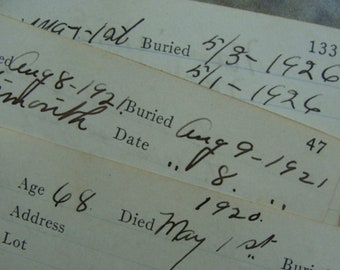 133
May-1st Buried 5/3-1926
5/1-1926
47
Died Aug 8-1921. Buried Aug 9-1921
month Date " 8. "
1920.
Age 68 Died May 1st
Address
Lot Buri